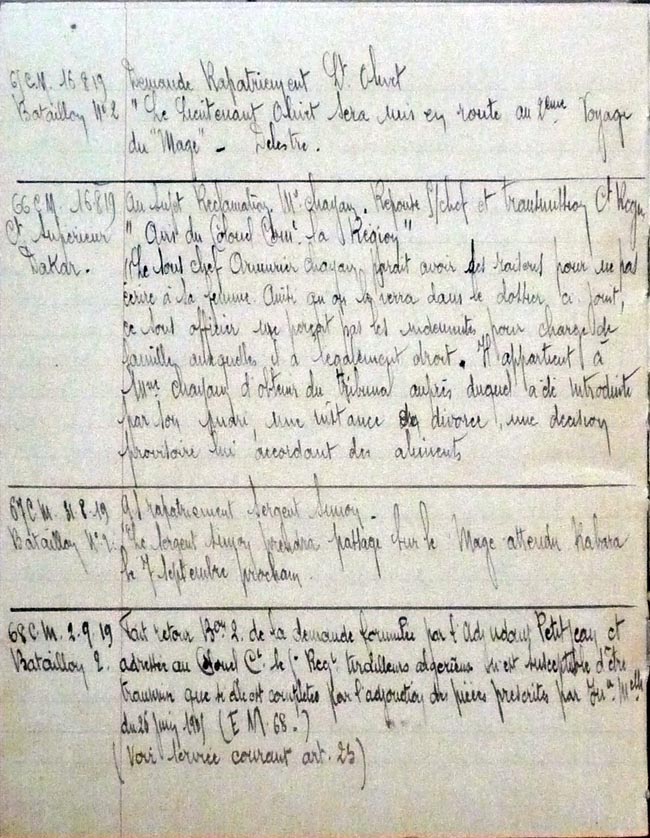 65 C.M. 16 8 19 Demande Rapatriement Lt. Olivet
Bataillon No 2 "Le Lieutenant Olivet sera mis en route au 2ème Voyage
du "Mage" - Delestre.
66 C M. 16 8 19 Au sujet Réclamation Me Chayan. Réponse S/chef et transmission Ct Région
Ct Supérieur " Avis du Colonel Comt la Région"
Dakar. Le sous chef Armurier Chayan parait avoir des raisons pour ne pas
écrire à sa femme. Ainsi qu'on le verra dans le dossier ci joint,
ce sous officier ne perçoit pas les indemnités pour charge de
famille auxquelles il a légalement droit. Il appartient à
Mme Chayan d'obtenir du tribunal auprès duquel a été introduite
par son mari, une instance de divorce, une décision
provisoire lui accordant des aliments
67 C M. 31.8.19 rapatriement Sergent Simon -
Bataillon No 2. "Le Sergent Simon prendra passage sur le Mage attendu Kabara
le 7 Septembre prochain.
68 C M. 2.9.19 Fait retour Bon 2. de la demande formulée par l'Adjudant Petitjean et
Bataillon 2. adressée au Colonel Ct le Regt tirailleurs algériens n'est susceptible d'être
transmise que si elle est complétée par l'adjonction des pièces prescrites par
du 26 juin (E M. 68.)
(Voir Service courant art. 23)